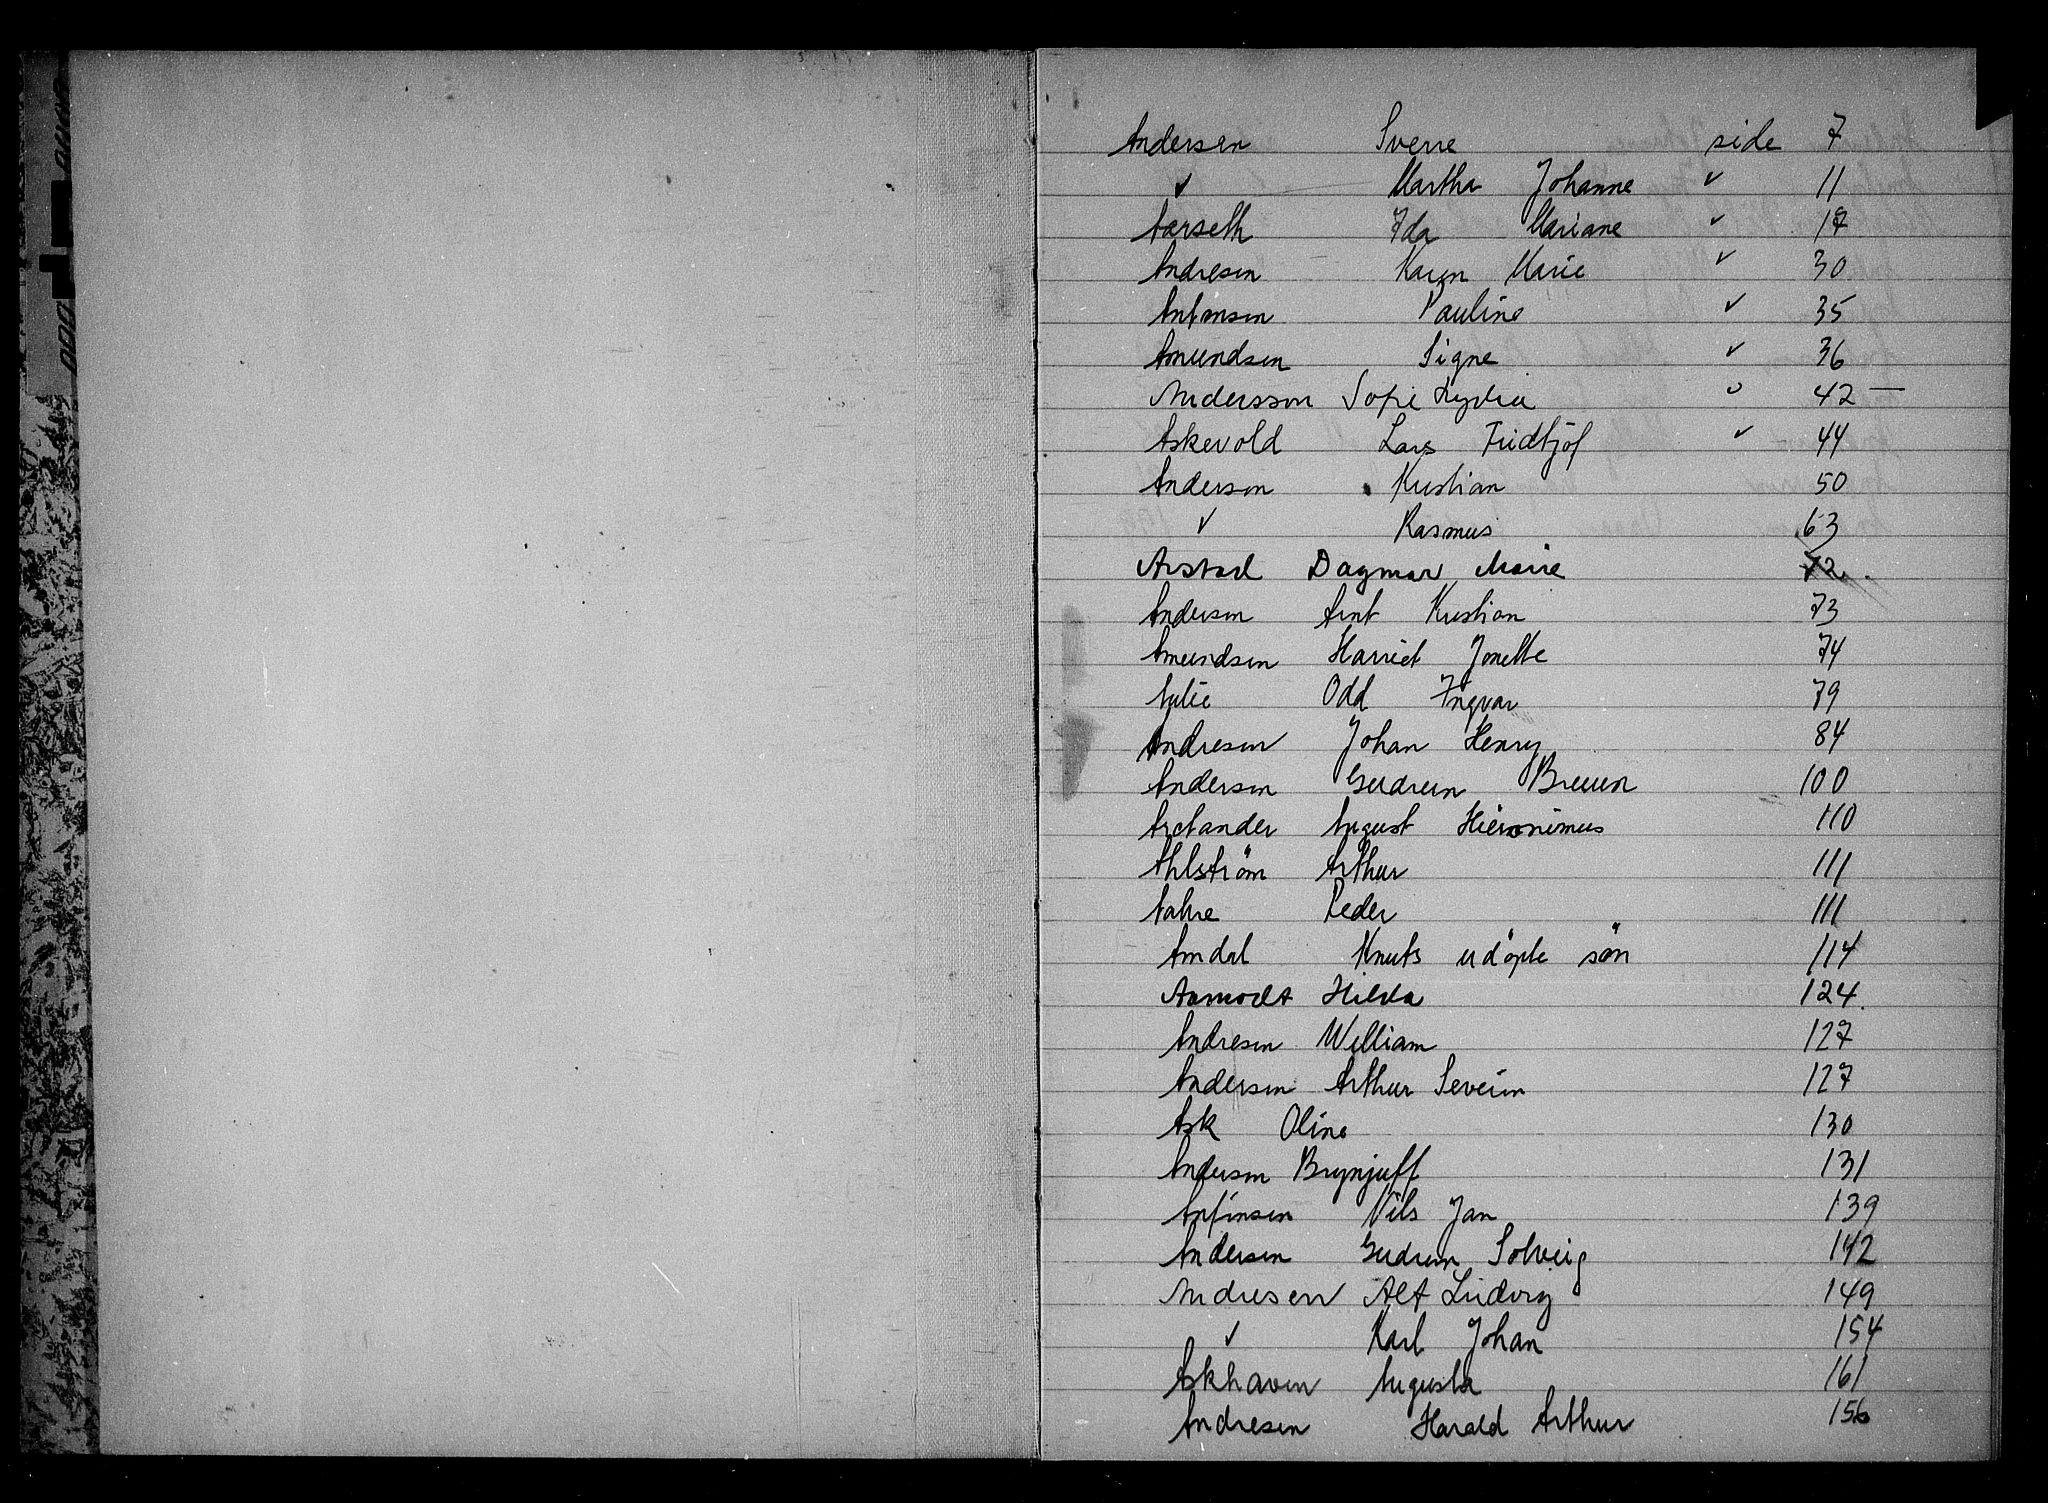 Andersen Sverre side 7
✓ Martha Johanne ✓ 11
Aarseth Ida Mariane ✓ 17
Andresen Karen Marie ✓ 30
Antonsen Pauline ✓ 35
Amundsen Signe ✓ 36
Andersson Sofie Lydia 42 —
Askevold Lars Fridtjof ✓ 44
Andersen Kristian 50
✓ Rasmus 63
Arstad Dagmar Marie 72
Andersen Arnt Kristian 73
Amundsen Harriet Jonette 74
Aulie Odd Ingvar 79
Andresen Johan Henry 84
Andersen Gudrun Breuer 100
Arctander August Hieronimus 110
Ahlström Arthur 111
Aakre Peder 111
Amdal Knuts udöpte sön 114
Aamodt Hilda 124
Andresen William 127
Andersen Arthur Severin 127
Ask Oline 130
Andersen Brynjulf 131
Anfinsen Nils Jan 139
Andersen Gudrun Solveig 142
Andresen Alf Ludvig 149
✓ Karl Johan 154
Askhaven Augusta 161
Andresen Harald Arthur 156